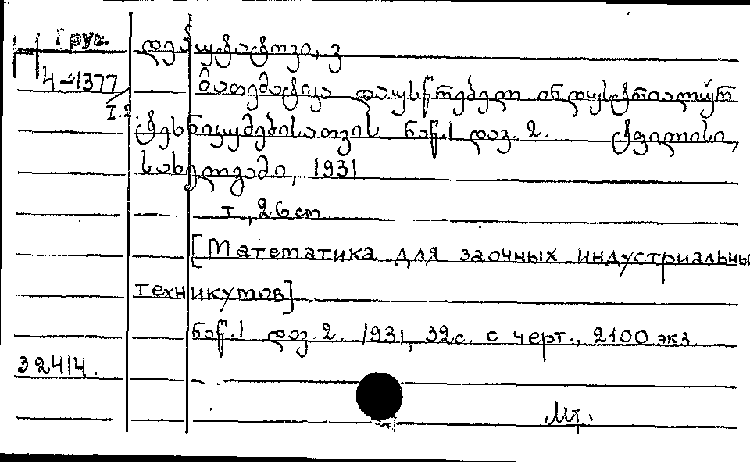 Груз.
4-1377
I.2
მათემატიკა დაუსწრებელ ინდუსტრიალურ
ტექნიკუმებისათვის ნაწ.1 დავ. 2. ტფილისი,
სახელგამი, 1931
т, 26 cm
[Математика для заочных индустриальны
техникумов]
ნაწ.1 დავ. 2. 1931, 32с. с черт., 2100 экз.
32414.